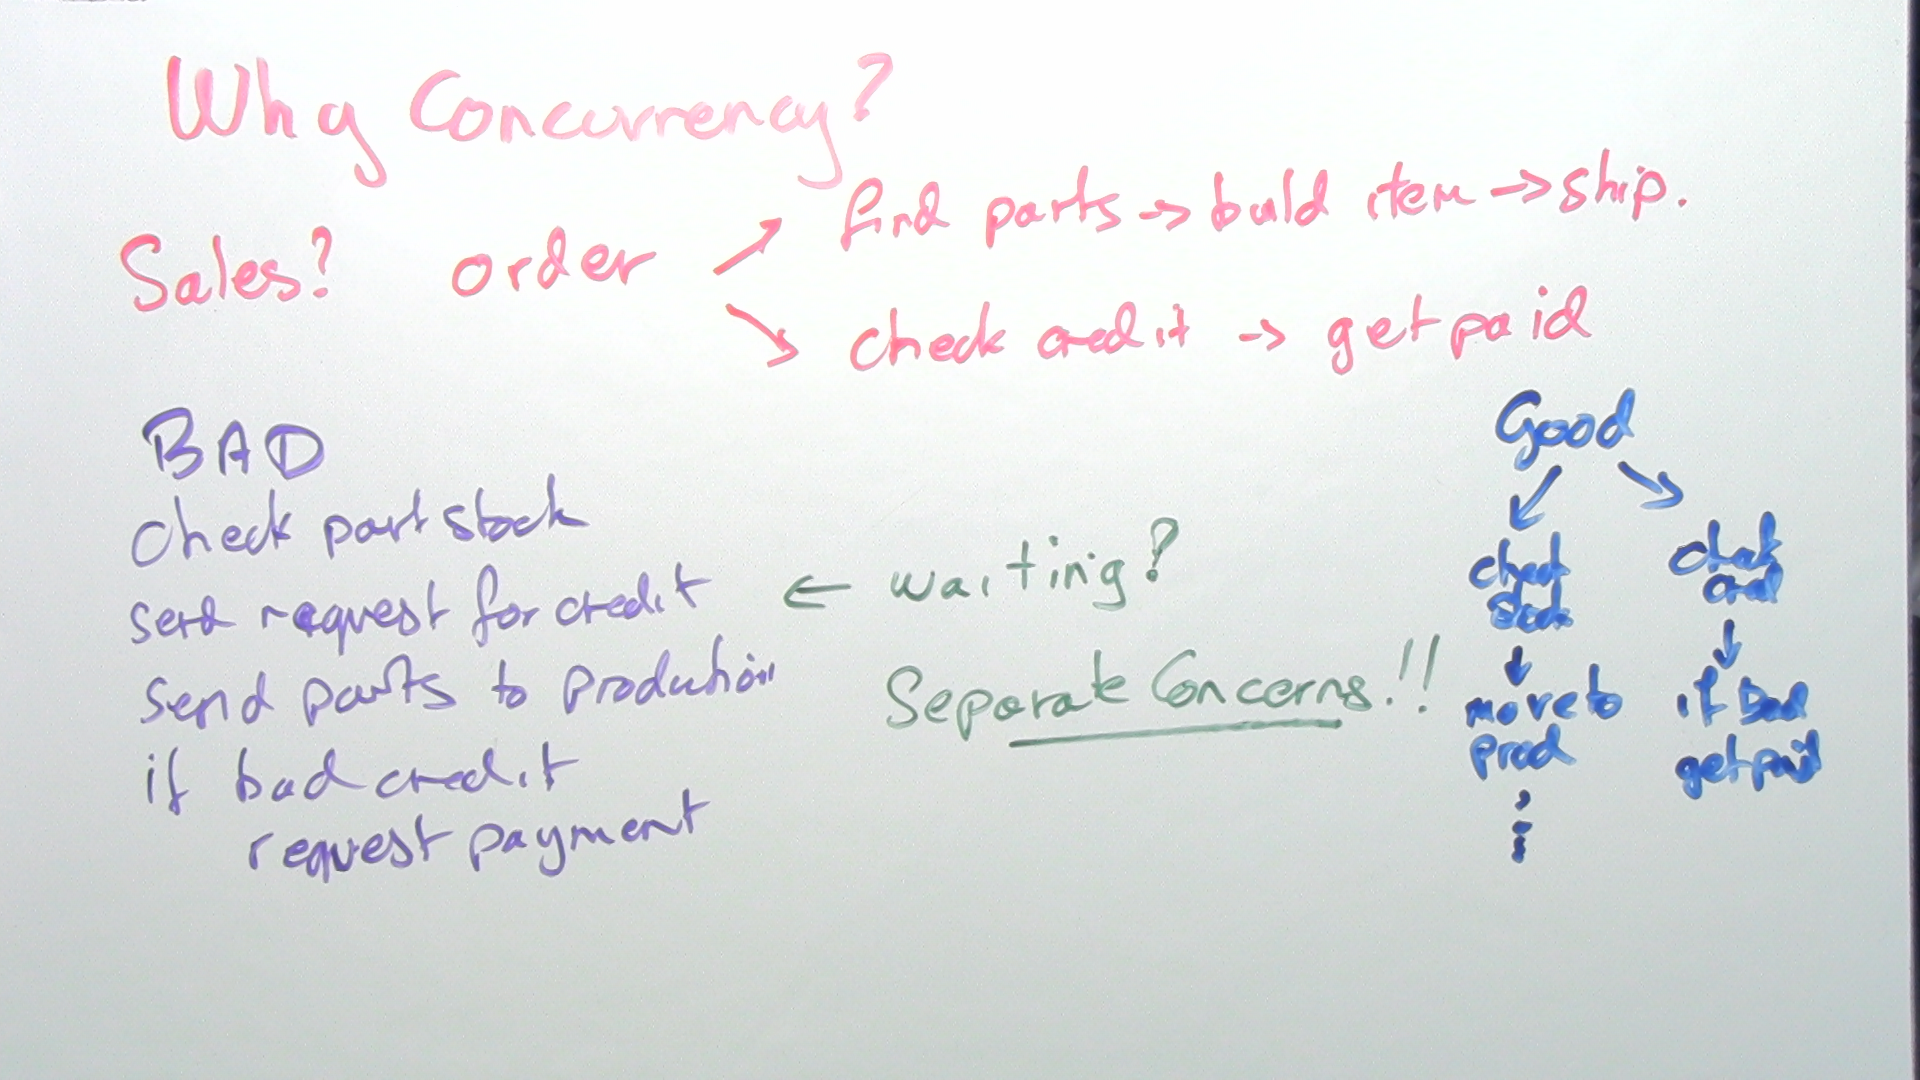 Why Concurrency?
Sales? order ↗ find parts → build item → ship.
↘ check credit → get paid
BAD
Check part stock
send request for credit ← waiting?
send parts to production
if bad credit
request payment
Separate Concerns!!
Good
check
stock
↓
move to
prod
check
cred
↓
if bad
get paid